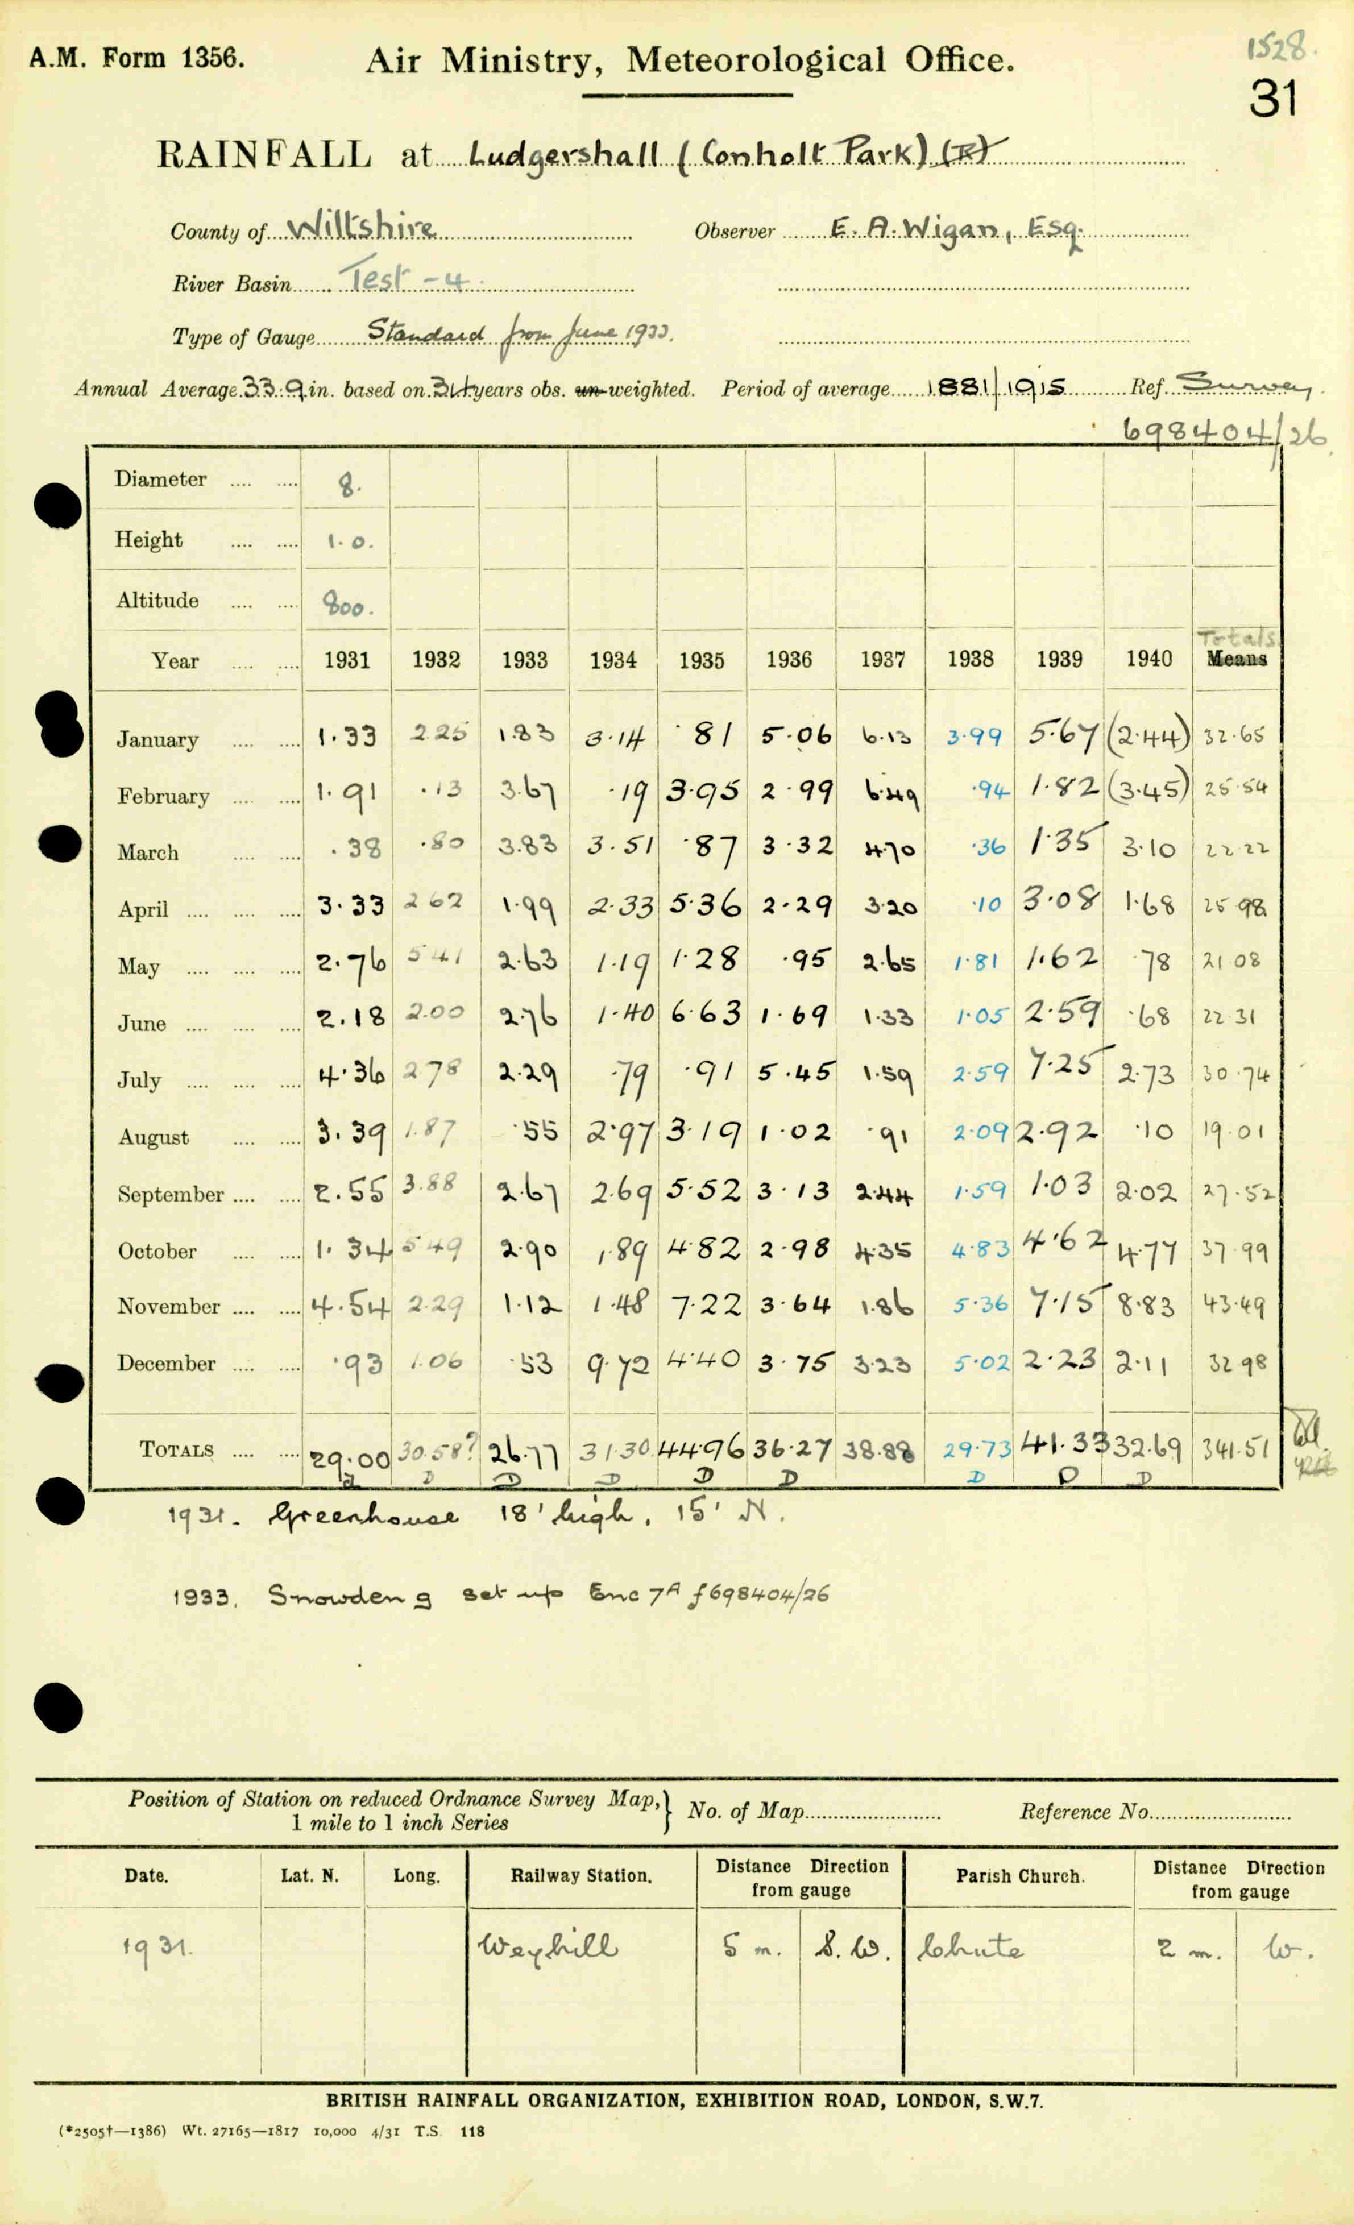 1528.
A.M. Form 1356. Air Ministry, Meteorological Office.
31
RAINFALL at Ludgershall (Conholt Park) (R)
County of Wiltshire Observer E. A. Wigan, Esq.
River Basin Test - 4.
Type of Gauge Standard from June 1933.
Annual Average 33.9 in. based on 34 years obs. un-weighted. Period of average 1881/1915 Ref. Survey.
698404/26.
Diameter 8.
Height 1.0.
Altitude 800.
Totals
Year 1931 1932 1933 1934 1935 1936 1937 1938 1939 1940 Means
January 1.33 2.25 1.83 3.14 .81 5.06 6.13 3.99 5.67 (2.44) 32.65
February 1.91 .13 3.67 .19 3.95 2.99 6.49 .94 1.82 (3.45) 25.54
March .38 .80 3.83 3.51 .87 3.32 4.70 .36 1.35 3.10 22.22
April 3.33 2.62 1.99 2.33 5.36 2.29 3.20 .10 3.08 1.68 25.98
May 2.76 5.41 2.63 1.19 1.28 .95 2.65 1.81 1.62 .78 21.08
June 2.18 2.00 2.76 1.40 6.63 1.69 1.33 1.05 2.59 .68 22.31
July 4.36 2.78 2.29 .79 .91 5.45 1.59 2.59 7.25 2.73 30.74
August 3.39 1.87 .55 2.97 3.19 1.02 .91 2.09 2.92 .10 19.01
September 2.55 3.88 2.67 2.69 5.52 3.13 2.44 1.59 1.03 2.02 27.52
October 1.34 5.49 2.90 1.89 4.82 2.98 4.35 4.83 4.62 4.77 37.99
November 4.54 2.29 1.12 1.48 7.22 3.64 1.86 5.36 7.15 8.83 43.49
December .93 1.06 .53 9.72 4.40 3.75 3.23 5.02 2.23 2.11 32.98
TOTALS 29.00 30.58? 26.77 31.30 44.96 36.27 38.88 29.73 41.33 32.69 341.51
D D D D D D D D
1931. Greenhouse 18' high, 15' N.
1933. Snowdon g set up Enc 7A f 698404/26
Position of Station on reduced Ordnance Survey Map, } No. of Map Reference No.
1 mile to 1 inch Series
Date. Lat. N. Long. Railway Station. Distance Direction from gauge Parish Church. Distance Direction from gauge
1931. Weyhill 5 m. S.W. Chute 2 m. W.
BRITISH RAINFALL ORGANIZATION, EXHIBITION ROAD, LONDON, S.W.7.
(*2505†—1386) Wt. 27165—1817 10,000 4/31 T.S. 118